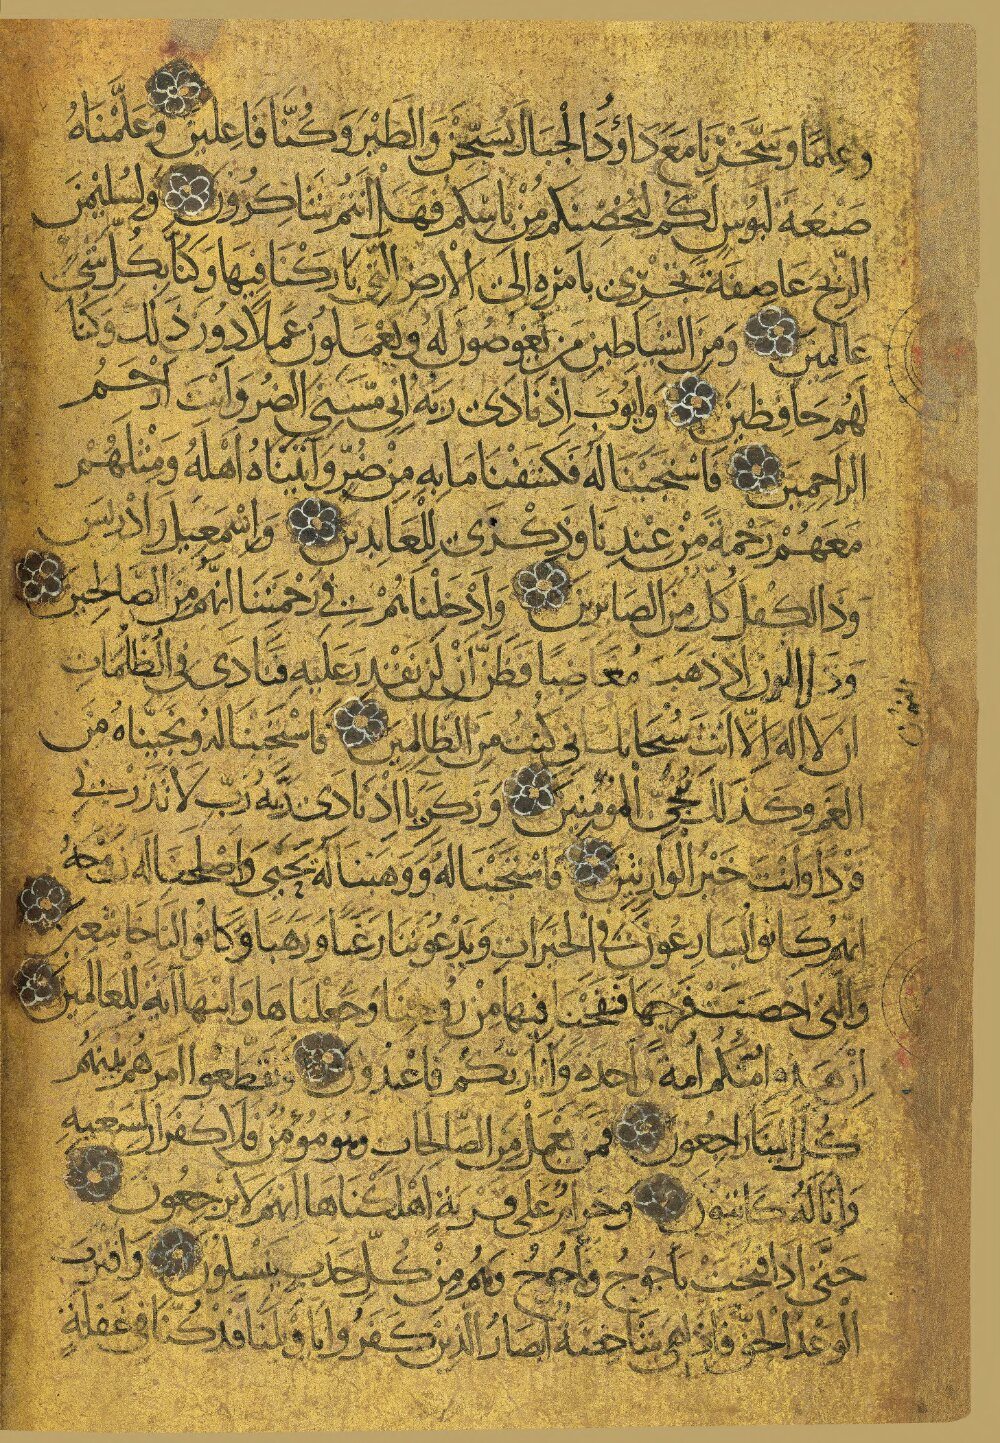 وعلما وسخرنا مع داؤد الجبال يسبحن والطير وكنا فاعلين وعلمناه
صنعة لبوس لكم لتحصنكم من باسكم فهل انتم شاكرون ولسليمن
الريح عاصفة تجري بامره الى الارض التي باركنا فيها وكنا بكل شئ
عالمين ومن الشياطين من يغوصون له ويعملون عملا دون ذلك وكنا
لهم حافظين وايوب اذ نادى ربه اني مسني الضر وانت ارحم
الراحمين فاستجبنا له فكشفنا ما به من ضر وآتيناه اهله ومثلهم
معهم رحمة من عندنا وذكرى للعابدين واسمعيل وادريس
وذا الكفل كل من الصابرين وادخلناهم في رحمتنا انهم من الصالحين
وذا النون اذ ذهب مغاضبا فظن ان لن نقدر عليه فنادى في الظلمات
ان لا اله الا انت سبحانك اني كنت من الظالمين فاستجبنا له ونجيناه من
الغم وكذلك ننجي المؤمنين وزكريا اذ نادى ربه رب لا تذرني
فردا وانت خير الوارثين فاستجبنا له ووهبنا له يحيى واصلحنا له زوجه
انهم كانوا يسارعون في الخيرات ويدعوننا رغبا ورهبا وكانوا لنا خاشعين
والتي احصنت فرجها فنفخنا فيها من روحنا وجعلناها وابنها آية للعالمين
ان هذه امتكم امة واحدة وانا ربكم فاعبدون وتقطعوا امرهم بينهم
كل الينا راجعون فمن يعمل من الصالحات وهو مؤمن فلا كفران لسعيه
وانا له كاتبون وحرام على قرية اهلكناها انهم لا يرجعون
حتى اذا فتحت ياجوج وماجوج وهم من كل حدب ينسلون واقترب
الوعد الحق فاذا هي شاخصة ابصار الذين كفروا يا ويلنا قد كنا في غفلة